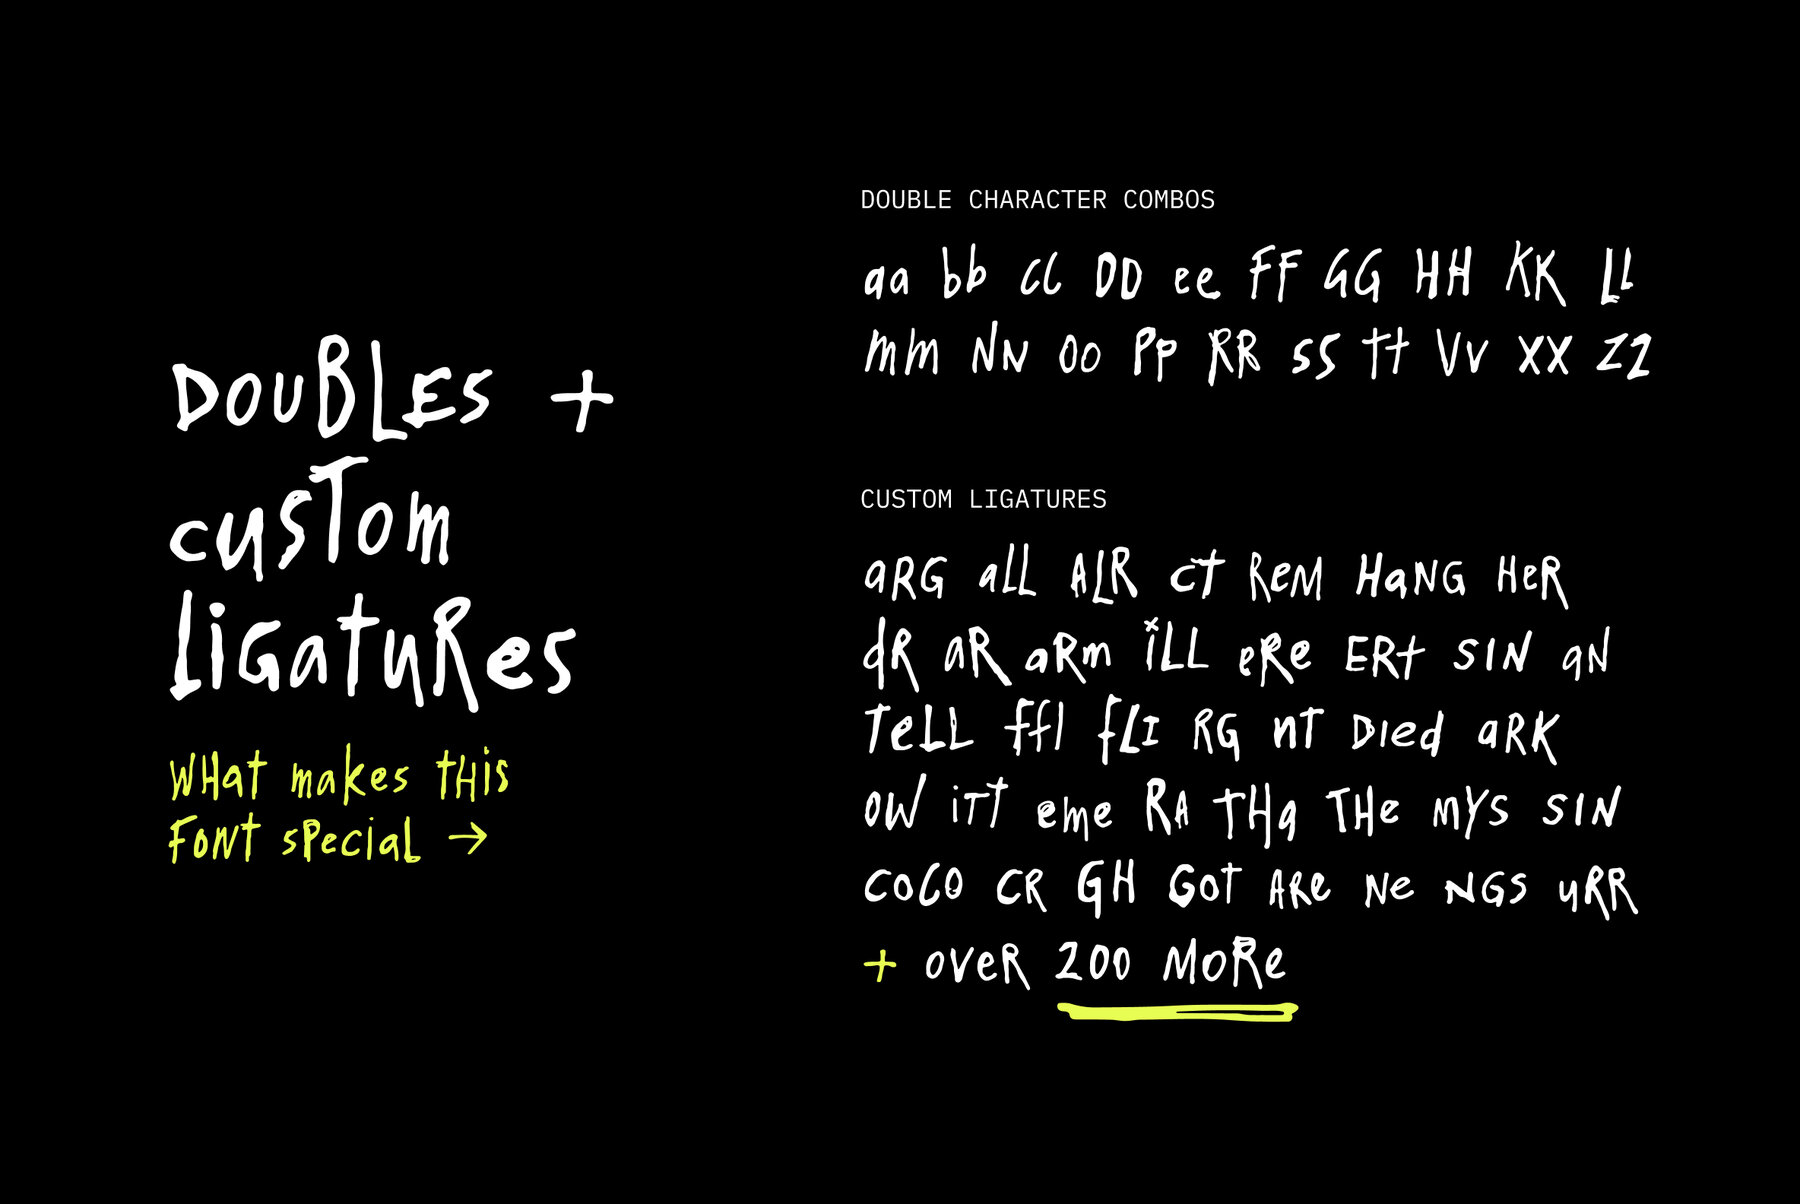 DouBLEs +
cusTom
LiGatuRes
WHat makes tHis
FoNt sPeciaL →
DOUBLE CHARACTER COMBOS
aa bb cc DD ee FF GG HH KK LL
mm NN oo PP RR ss tt Vv xx zz
CUSTOM LIGATURES
aRG aLL ALR cT ReM HaNG HeR
dR aR aRm iLL eRe ERt sIN aN
TeLL ffl fLI RG nT DIed aRK
oW iTT eme RA THa THe mYs sIN
coco CR GH GoT ARe Ne NGs uRR
+ oveR 200 MoRe